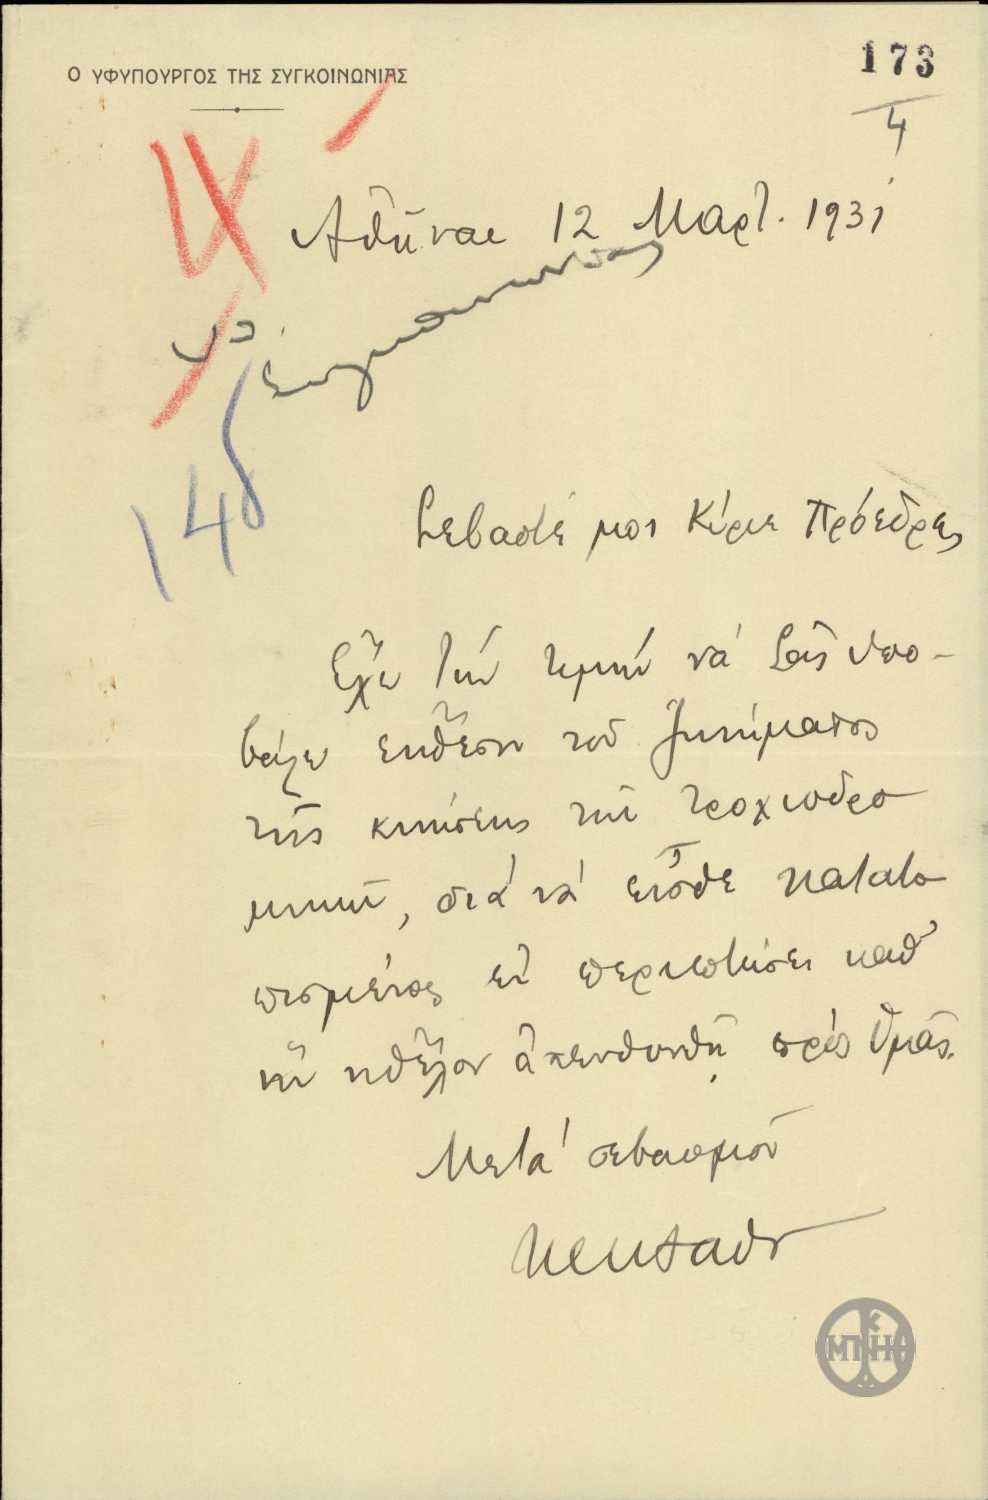 Ο ΥΦΥΠΟΥΡΓΟΣ ΤΗΣ ΣΥΓΚΟΙΝΩΝΙΑΣ
173
4
Ἀθῆναι 12 Μαρτ. 1931
Υπ. Συγκοινωνίας
145
Σεβαστέ μοι Κύριε Πρόεδρε,
Ἔχω τήν τιμήν νά Σᾶς ὑπο-
βάλω ἔκθεσιν τοῦ ζητήματος
τῆς κινήσεως τῶν τροχιοδρο
μικῶν, διά νά εἶσθε κατατο
πισμένος ἐν περιπτώσει καθ'
ἥν ἤθελον ἀπευθυνθῆ πρός Ὑμᾶς.
Μετά σεβασμοῦ
ΜΠΗΚ